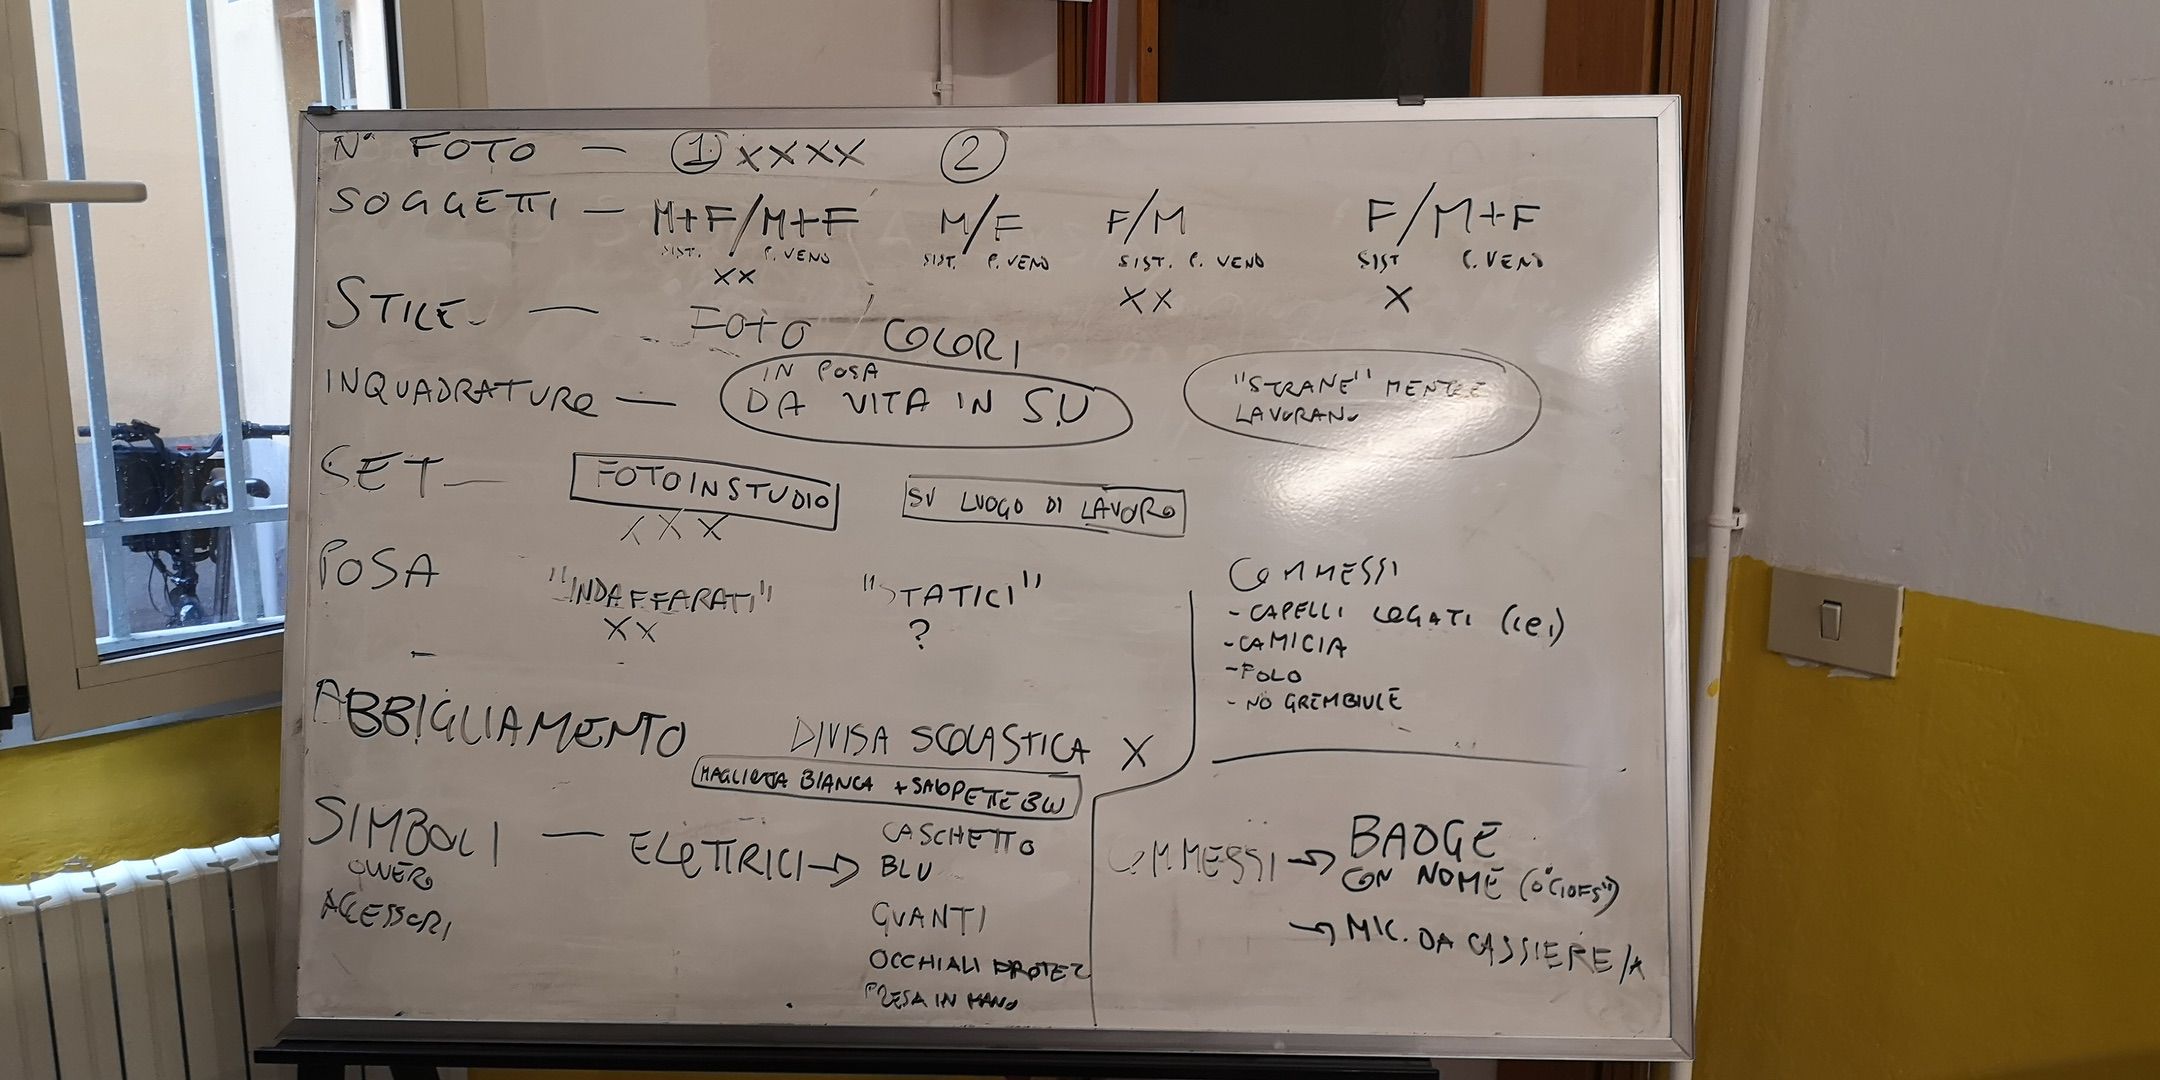 N° FOTO — 1 XXXX 2
SOGGETTI — M+F/M+F M/F F/M F/M+F
SIST. P. VEND SIST. P. VEND SIST. P. VEND SIST P. VEND
XX XX X
STILE — FOTO COLORI
INQUADRATURE — IN POSA
DA VITA IN SU
"STRANE" MENTRE
LAVORANO
SET — FOTO IN STUDIO SU LUOGO DI LAVORO
XXX
POSA "INDAFFARATI" "STATICI"
XX ?
COMMESSI
- CAPELLI LEGATI (LEI)
- CAMICIA
- POLO
- NO GREMBIULE
ABBIGLIAMENTO DIVISA SCOLASTICA X
MAGLIETTA BIANCA + SALOPETTE BLU
SIMBOLI — ELETTRICI → CASCHETTO
BLU
OVVERO
ACCESSORI
GUANTI
OCCHIALI PROTEZ
PRESA IN MANO
COMMESSI → BADGE
CON NOME (O "CIOFS")
→ MIC. DA CASSIERE/A